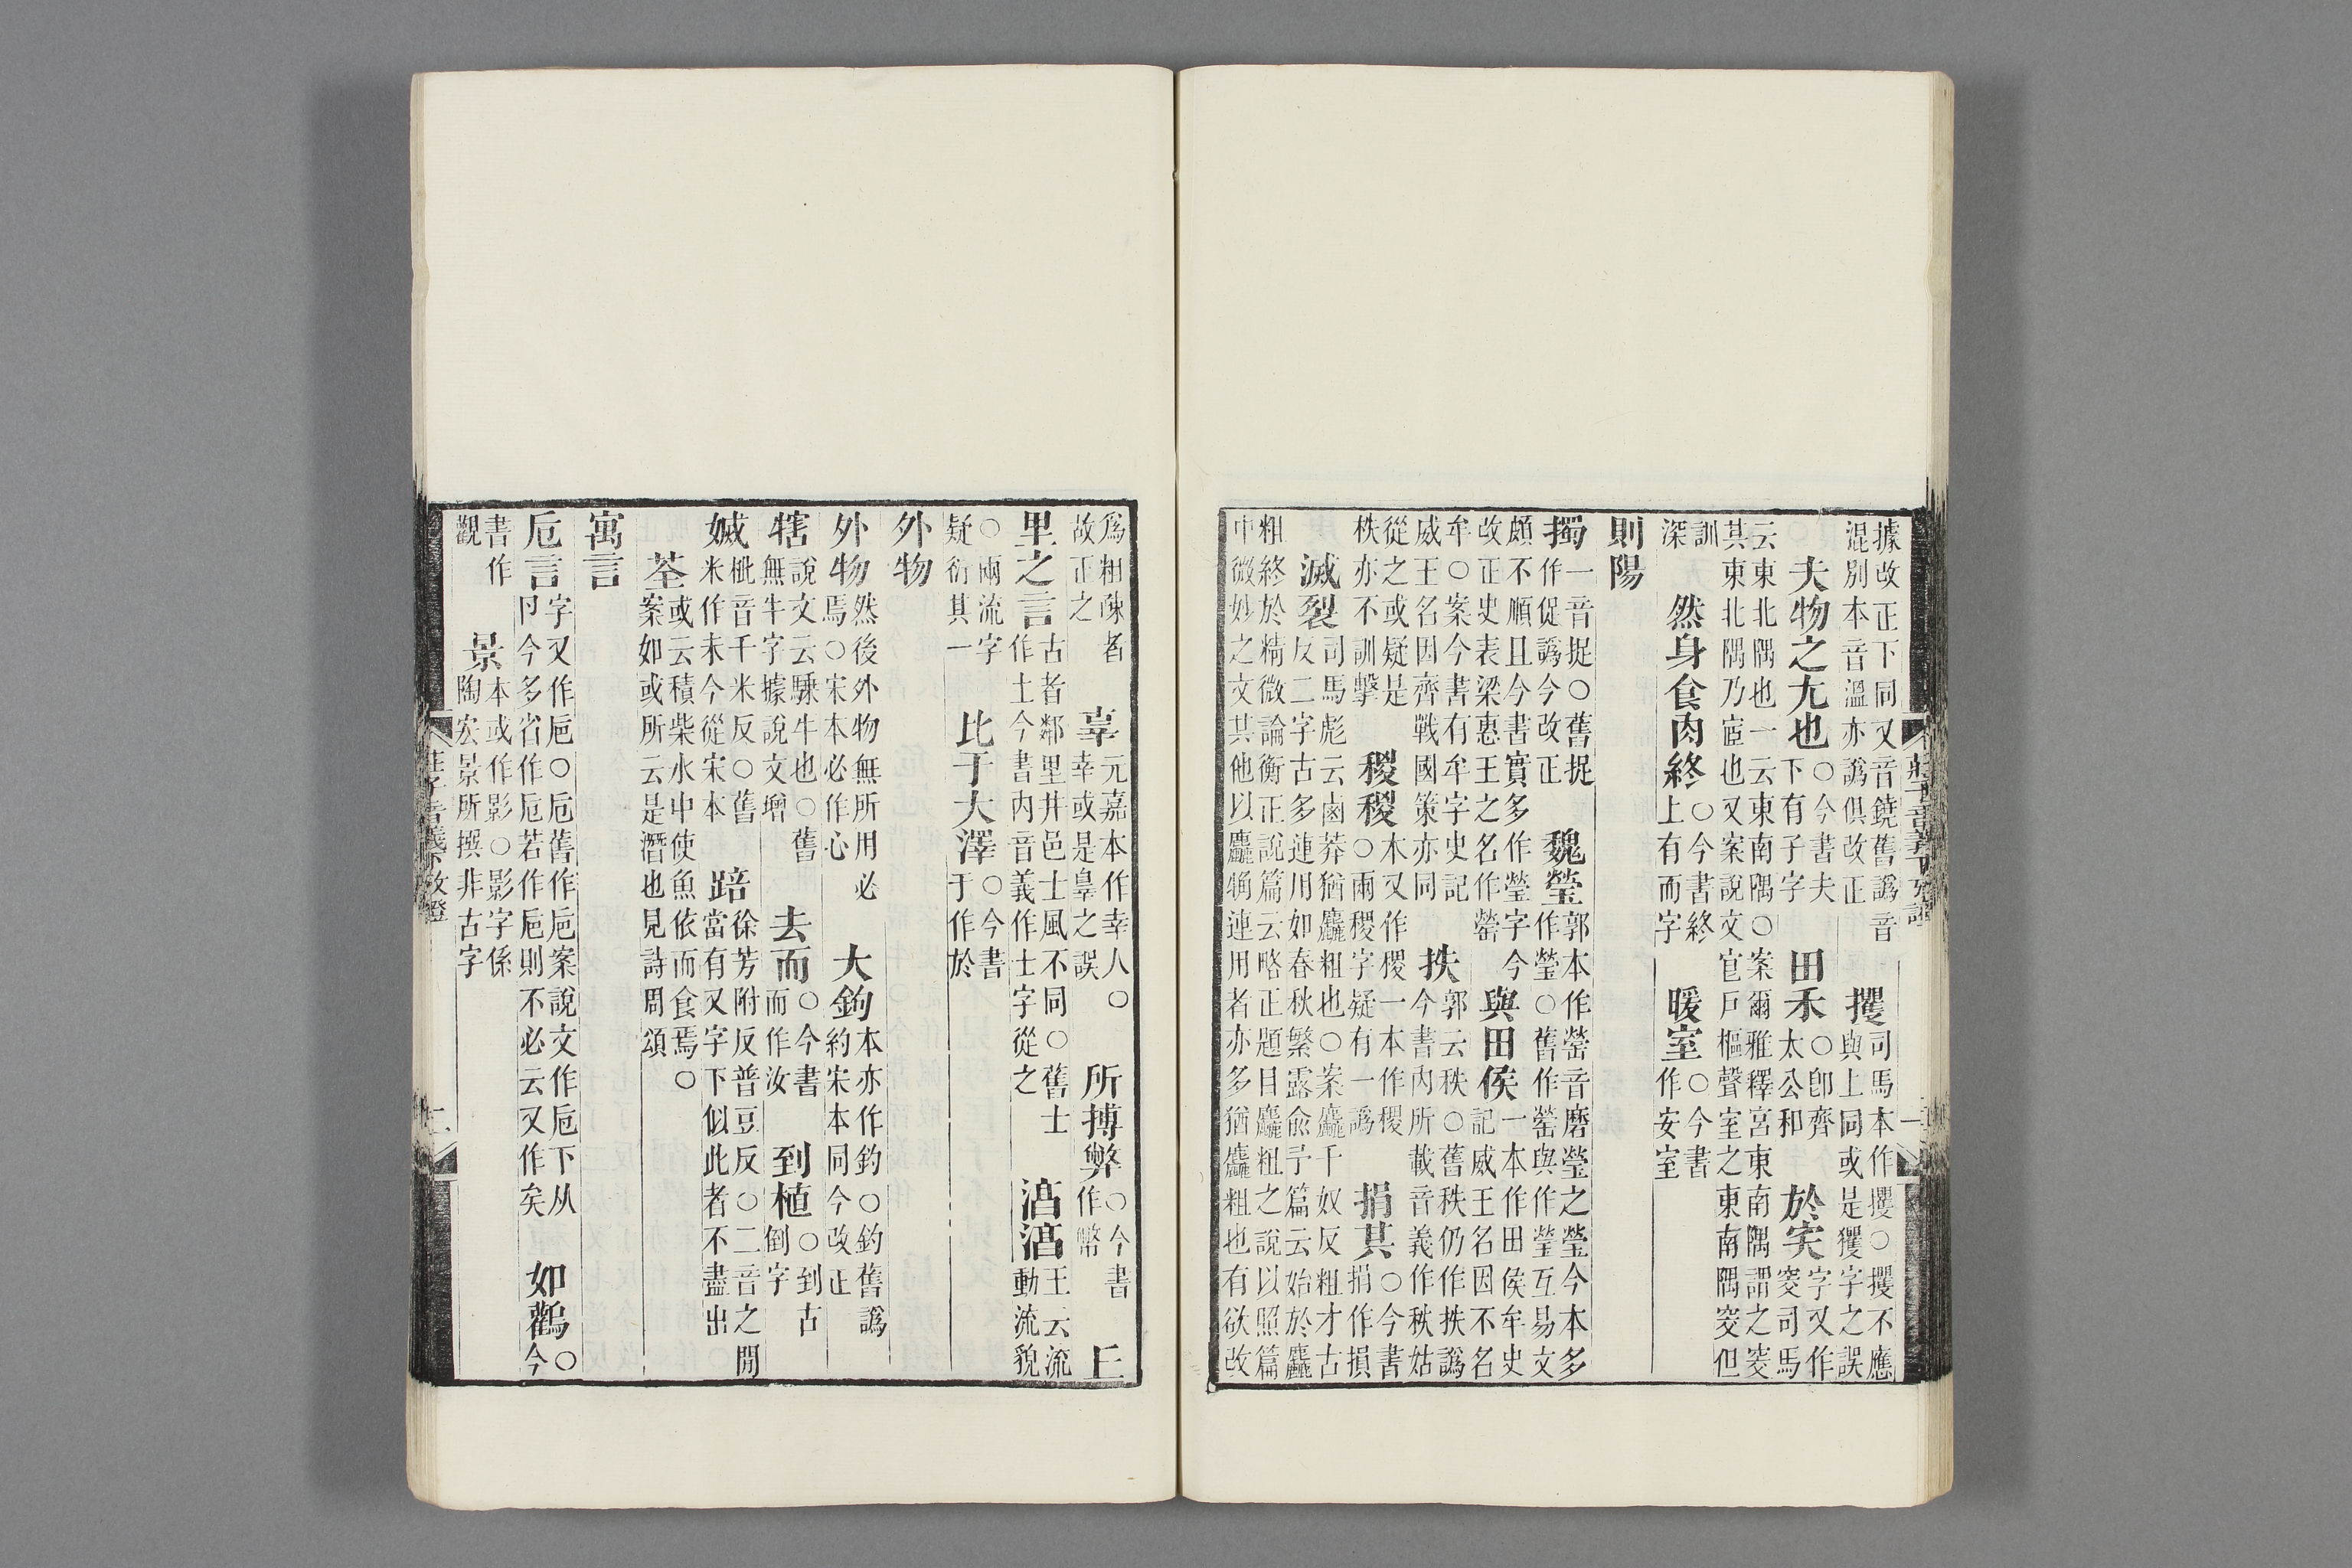 據改正下同又音鐃舊譌音混別本音溫亦譌俱改正　攫司馬本作攫○攫不應與上同或是玃字之誤
夫物之尢也○今書夫下有子字　田禾○卽齊太公和　於宎字又作窔司馬
云東北隅也一云東南隅○案爾雅釋宮東南隅謂之窔其東北隅乃宧也又案說文官戸樞聲室之東南隅窔但
訓深　然身食肉終○今書終上有而字　暖室○今書作安室
則陽
擉一音捉○舊捉作促譌今改正　魏瑩郭本作罃音磨瑩之瑩今本多作瑩○舊作罃與作瑩互易文
頗不順且今書實多作瑩字今改正史表梁惠王之名作罃　與田侯一本作田侯牟史記威王名因不名
牟○案今書有牟字史記威王名因齊戰國策亦同　抶郭云秩○舊秩仍作抶譌今書內所載音義作秋姑
從之或疑是秩亦不訓擊　稷稷本又作稷一本作稷○兩稷字疑有一譌　捐其○今書捐作損
滅裂司馬彪云鹵莽猶麤粗也○案麤千奴反粗才古反二字古多連用如春秋繁露俞予篇云始於麤
粗終於精微論衡正說篇云略正題目麤粗之說以照篇中微妙之文其他以麤觕連用者亦多猶麤粗也有欲改
爲粗疎者故正之　辜元嘉本作幸人○幸或是辠之誤　所搏弊○今書作幣　丘
里之言古者鄰里井邑士風不同○舊士作土今書內音義作士字從之　湻湻王云流動流貌
○兩流字疑衍其一　比于大澤○今書于作於
外物
外物然後外物無所用必焉○宋本必作心　大鉤本亦作釣○釣舊譌約宋本同今改正
犗說文云騬牛也○舊無牛字據說文增　去而○今書而作汝　到植○到古倒字
媙枇音千米反○舊米作未今從宋本　踣徐芳附反普豆反○二音之閒當有又字下似此者不盡出
荃或云積柴水中使魚依而食焉○案如或所云是潛也見詩周頌
寓言
巵言字又作巵○巵舊作巵案說文作巵下从卪今多省作巵若作巵則不必云又作矣　如鸛○今
書作觀　景本或作影○影字係陶宏景所撰非古字
莊子音義下攷證